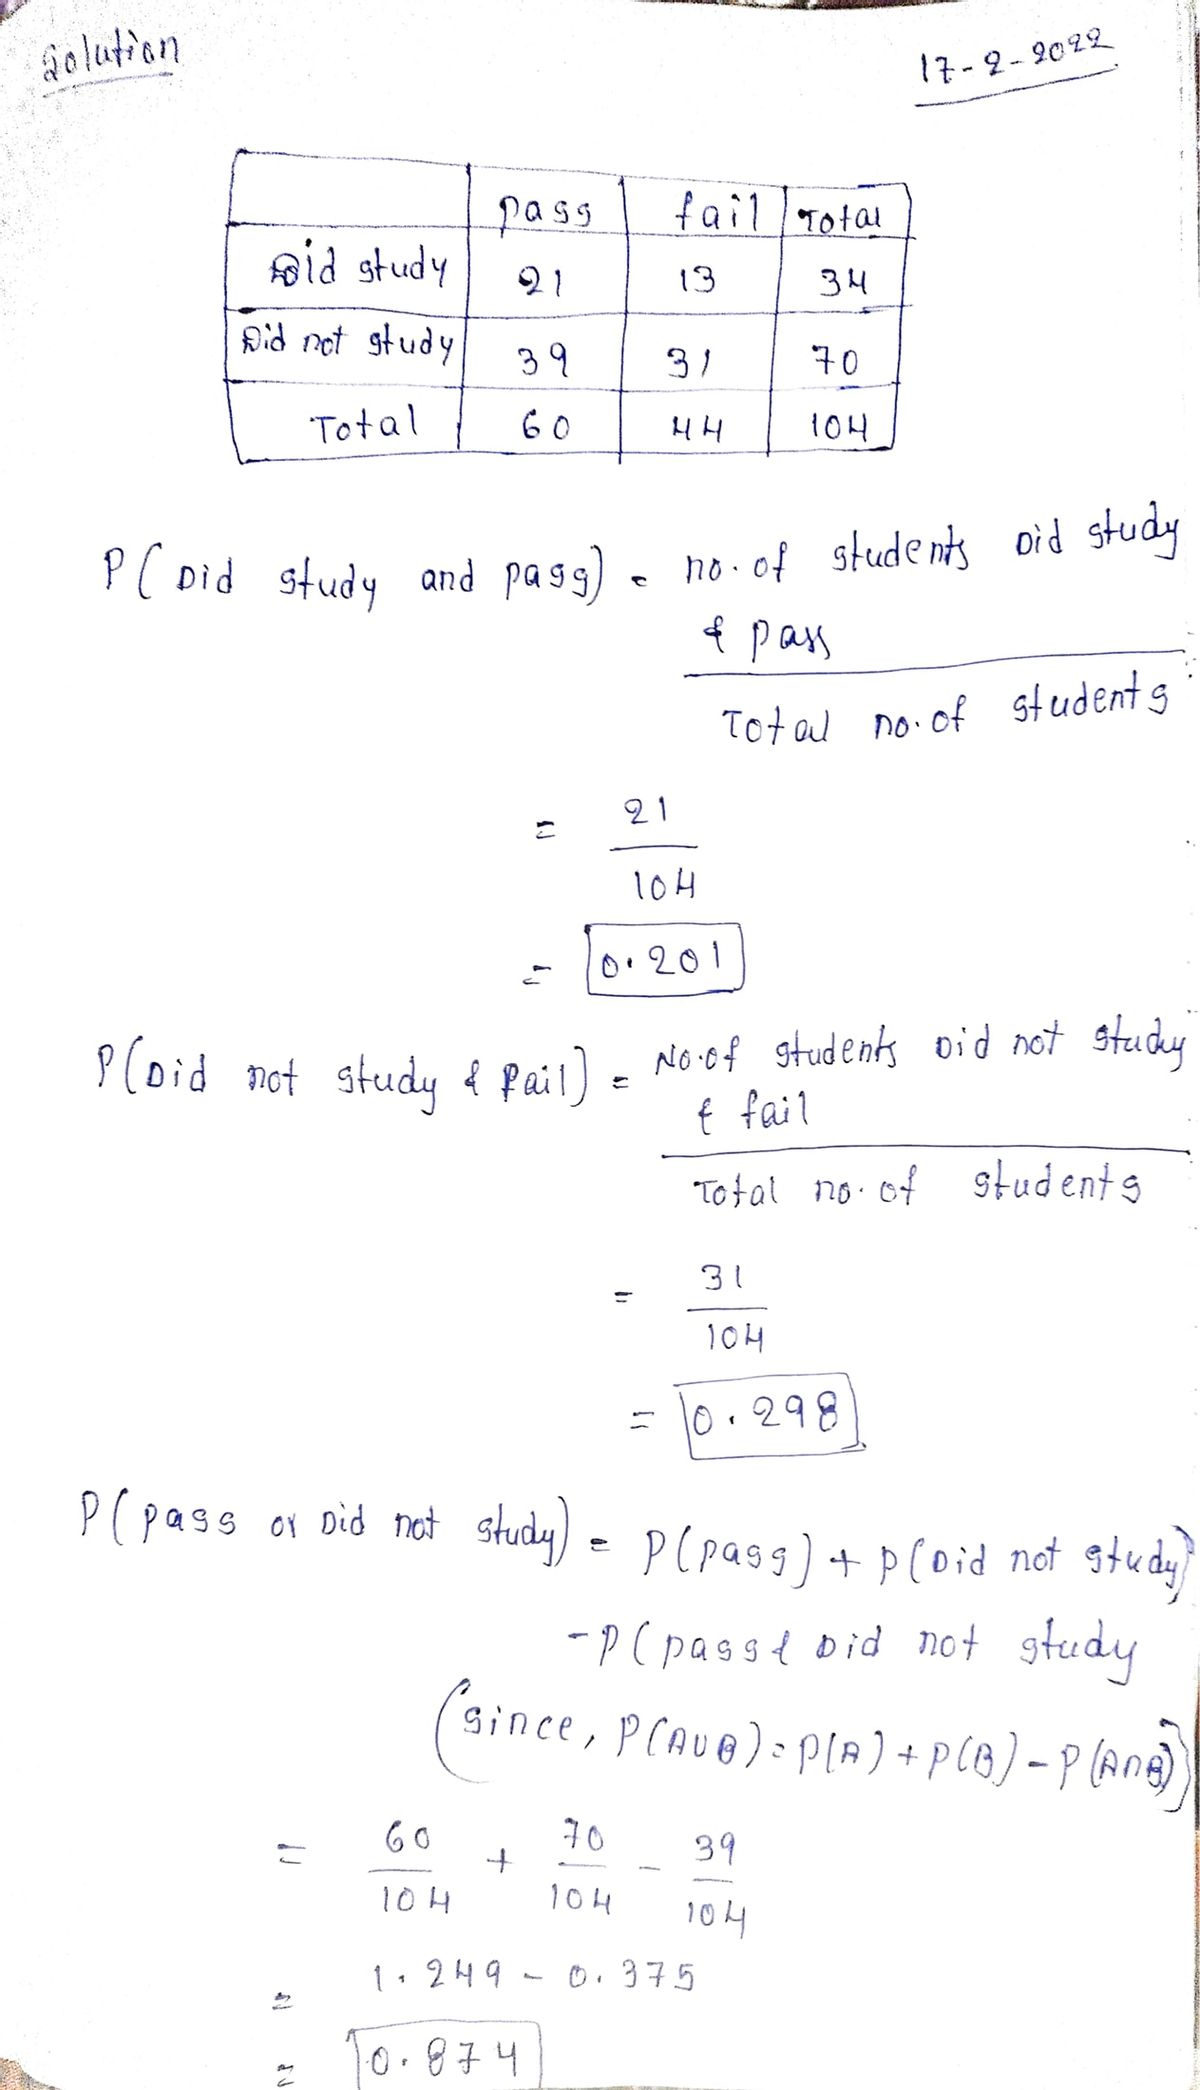 Solution
17-2-2022
pass fail Total
Did study 21 13 34
Did not study 39 31 70
Total 60 44 104
P(Did study and pass) = no. of students Did study
& pass
Total no. of students
= 21
104
= 0.201
P(Did not study & Fail) = No. of students Did not study
& fail
Total no. of students
= 31
104
= 0.298
P(pass or Did not study) = P(pass) + P(Did not study)
-P(pass & Did not study
(since, P(A∪B) = P(A) + P(B) - P(A∩B))
= 60 + 70 - 39
104 104 104
= 1.249 - 0.375
= 0.874